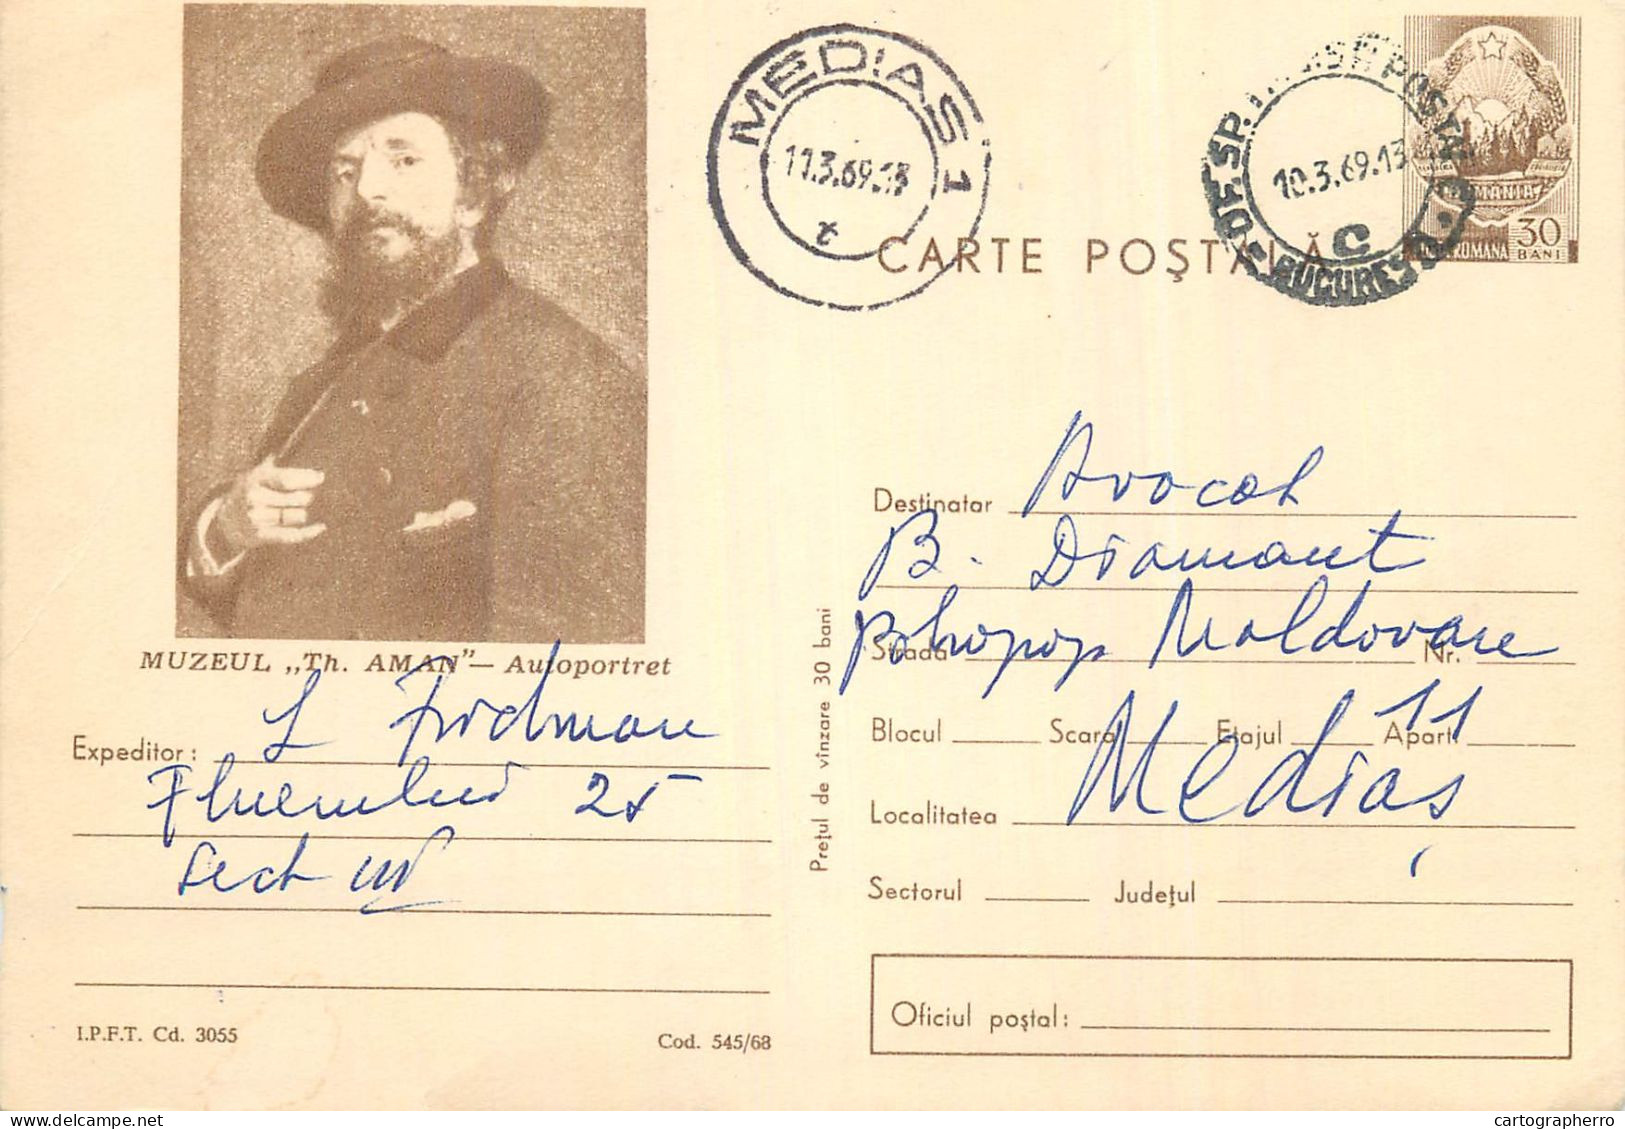 MEDIAS 1
11.3.69.13
OF. SP. POST
10.3.69.13
C
BUCUREȘTI
ROMANIA
30
BANI
ROMANA
CARTE POȘTALĂ
MUZEUL „Th. AMAN”— Autoportret
Expeditor: L Fridman
25
Sect
I.P.F.T. Cd. 3055
Cod. 545/68
Prețul de vînzare 30 bani
Destinatar Avocat
B. Diamant
Strada Moldovare Nr.
Blocul Scara Etajul Apart. 11
Localitatea Mediaș
Sectorul Județul
Oficiul poștal:
cartographerro